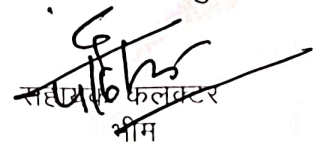 सहायक कलक्टर
भीम